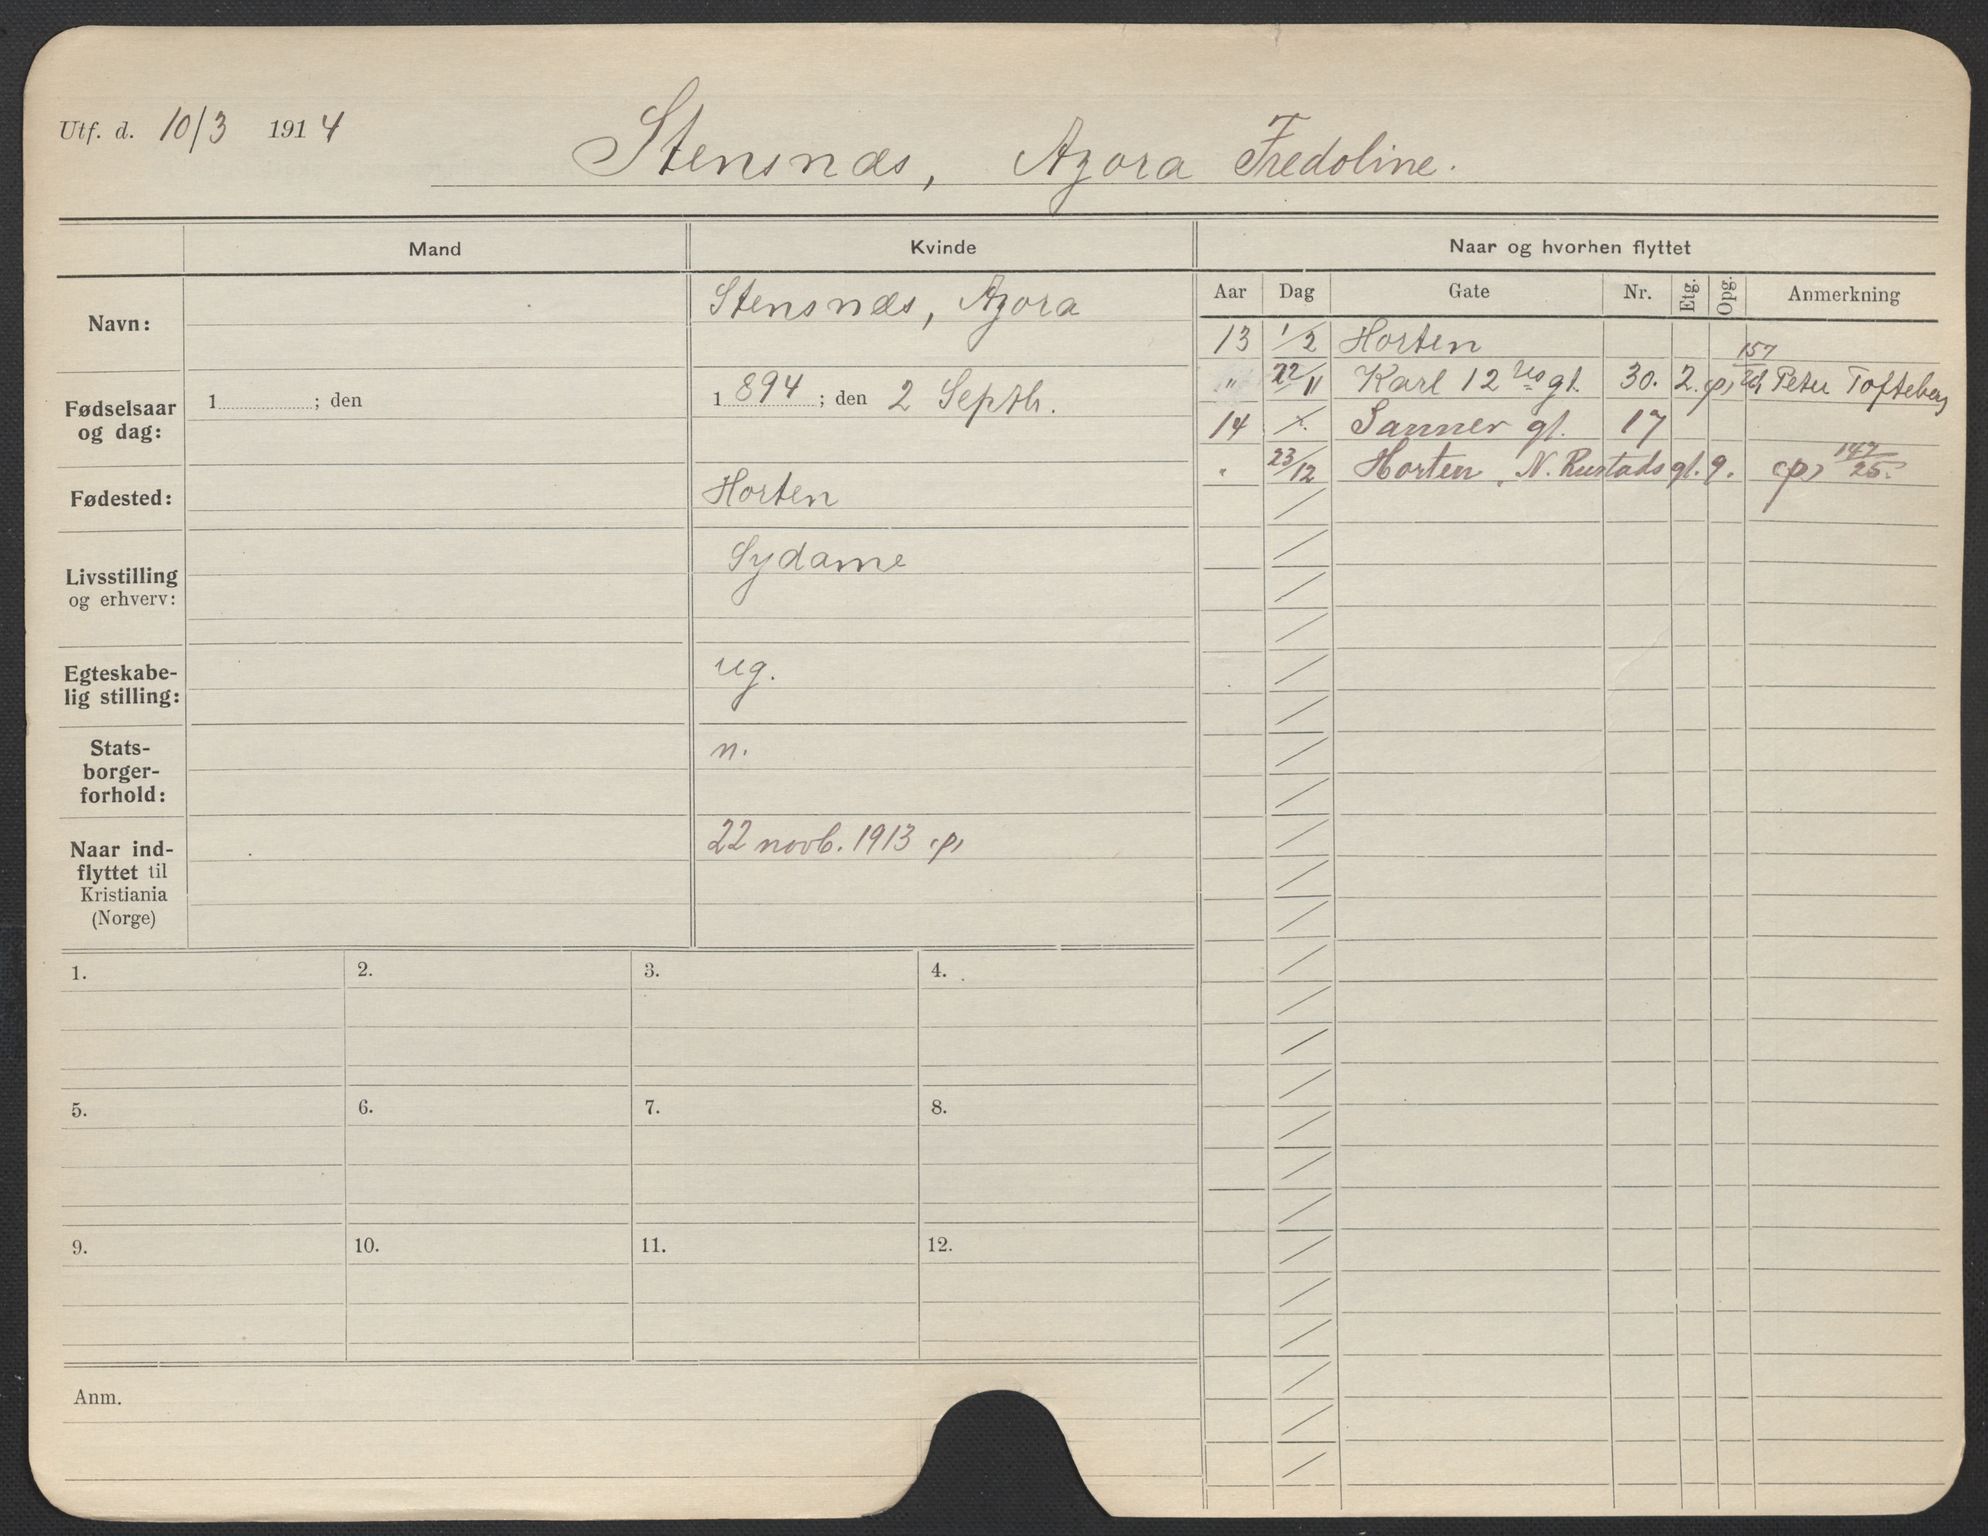 Utf. d. 10/3 1914
Stensnæs, Azora Fredoline.
Mand
Kvinde
Naar og hvorhen flyttet
Aar Dag Gate Nr. Etg. Opg. Anmerkning
Navn:
Stensnæs, Azora
Fødselsaar
og dag:
1 ; den
1894 ; den 2 Septb.
Fødested:
Horten
Livsstilling
og erhverv:
Sydame
Egteskabe-
lig stilling:
ug.
Stats-
borger-
forhold:
n.
Naar ind-
flyttet til
Kristiania
(Norge)
22 novb. 1913 (p)
13 1/2 Horten
157
" 22/11 Karl 12 tes gt. 30. 2. (p) Peter Tofteberg
14 Sanner gt. 17
" 23/12 Horten, N. Rustads gt. 9. (p) 147/25.
1.
2.
3.
4.
5.
6.
7.
8.
9.
10.
11.
12.
Anm.